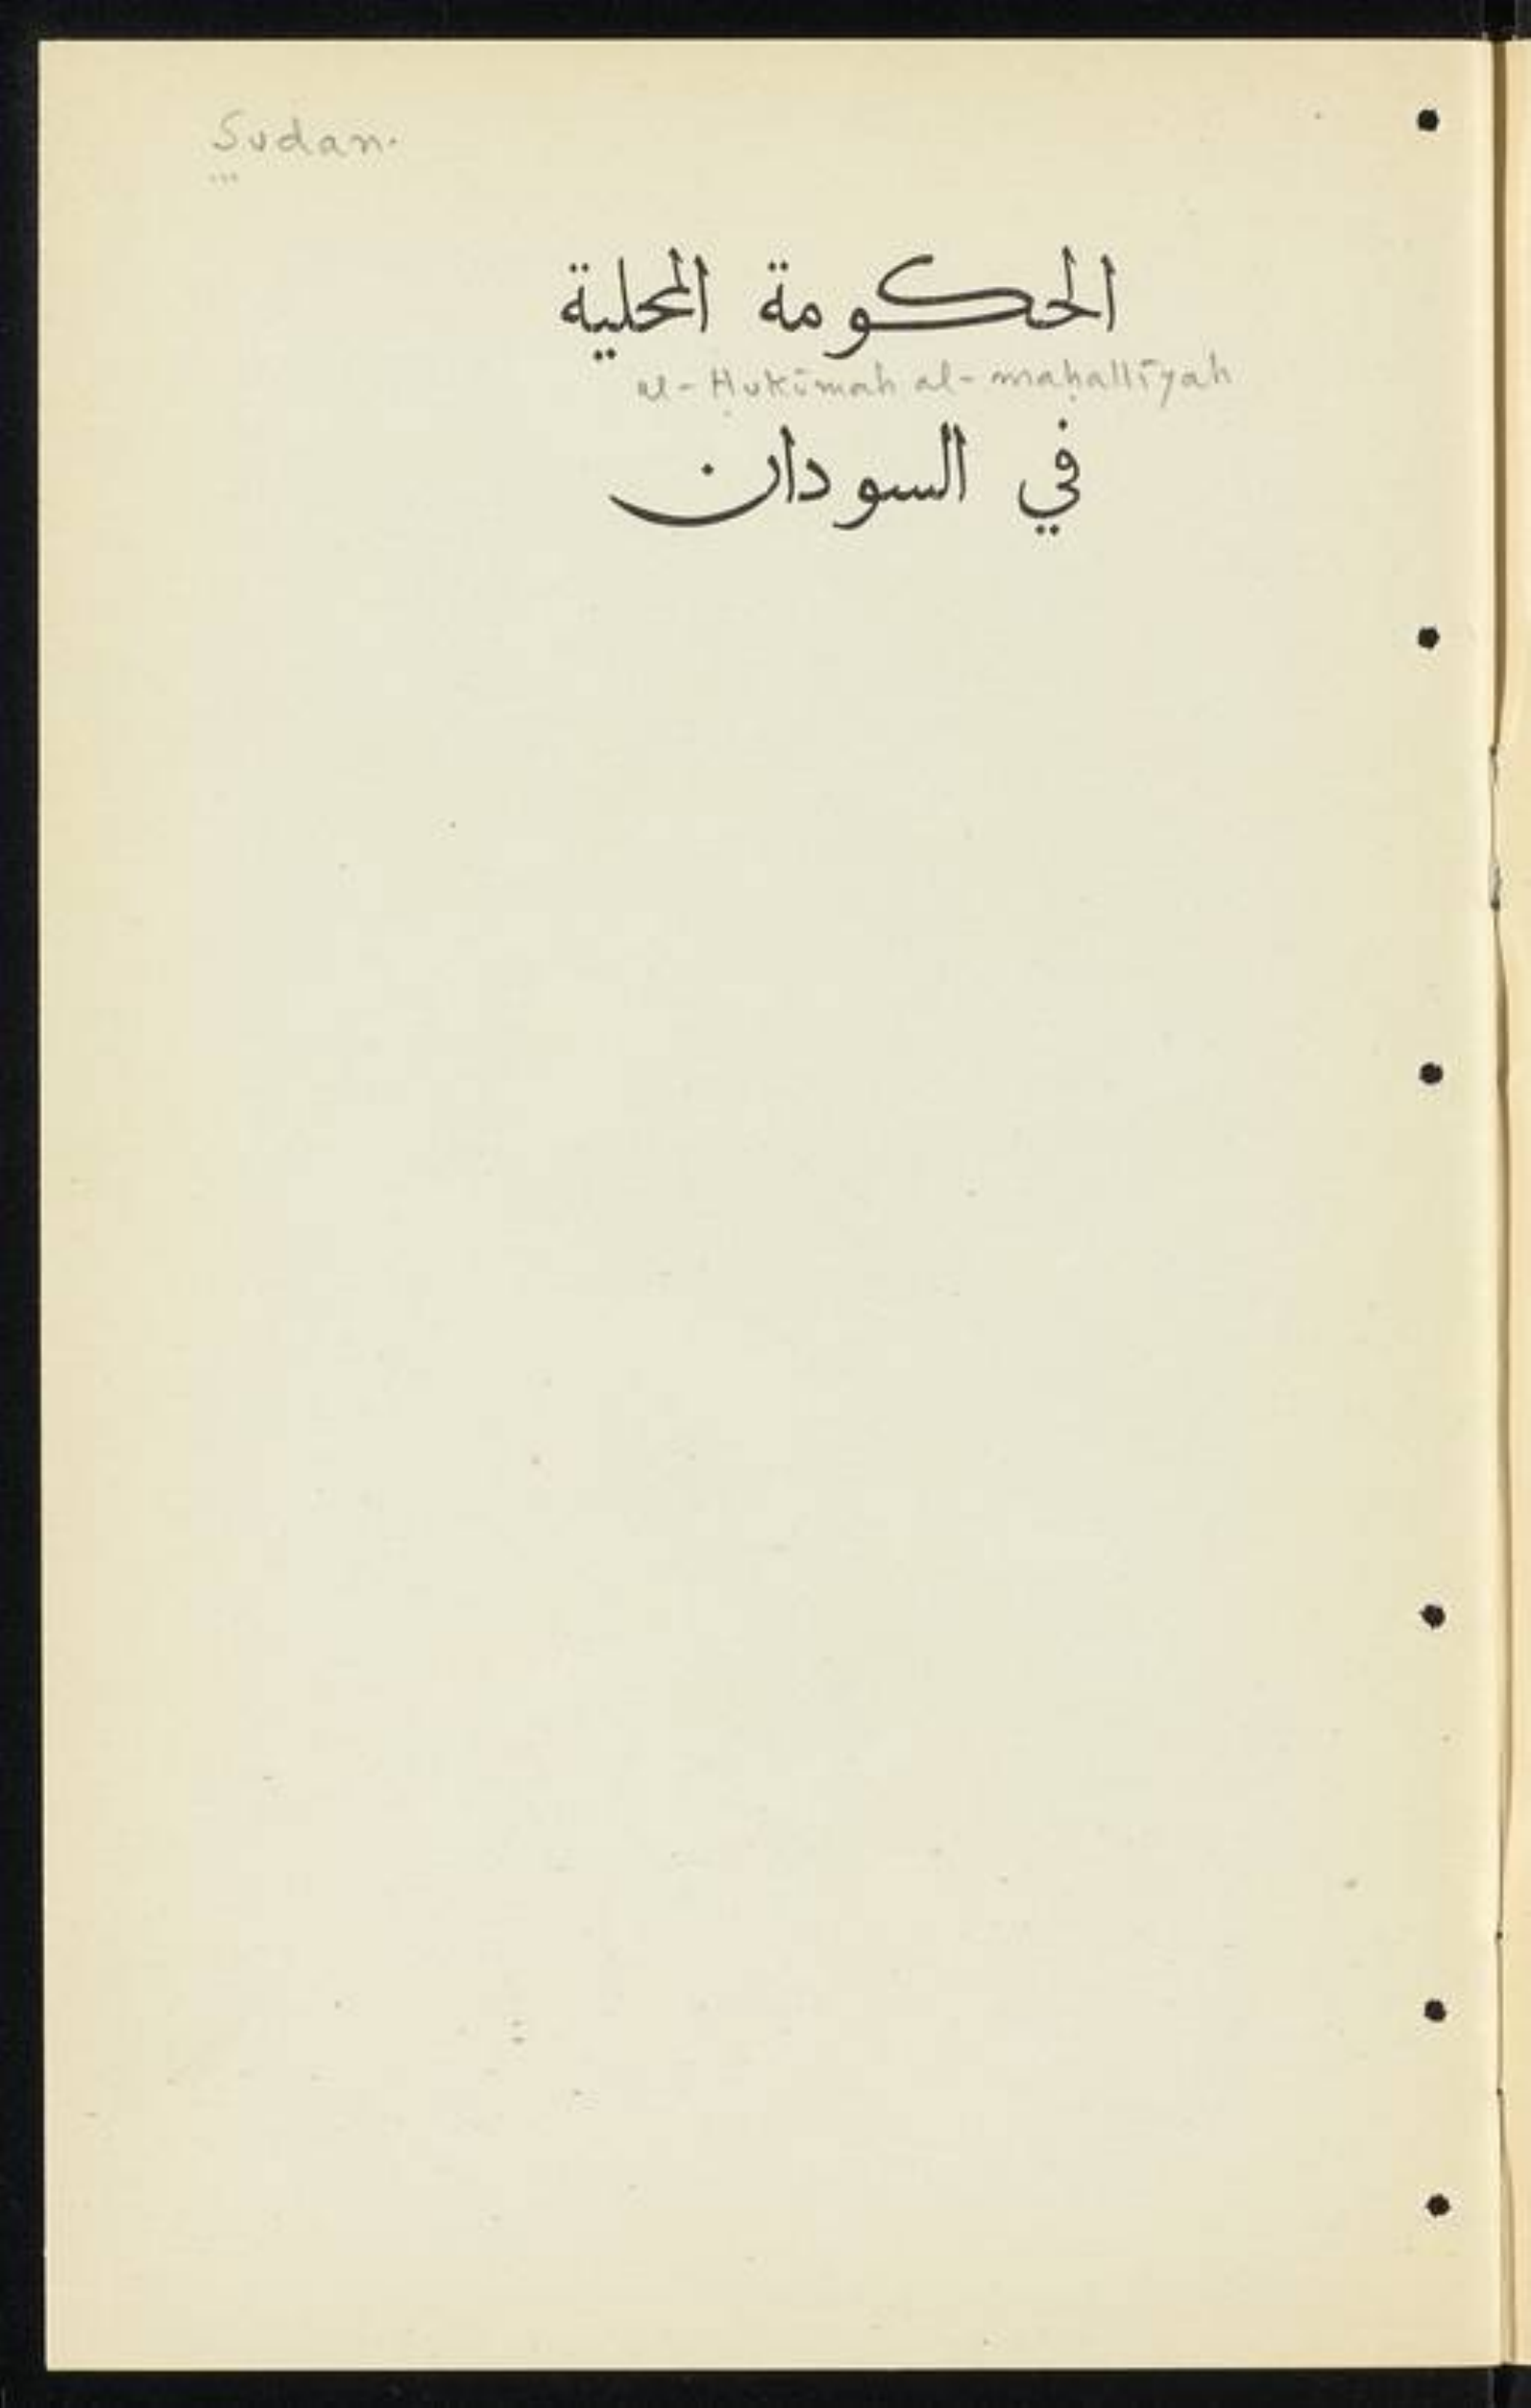 Sudan.
الحكومة المحلية
al-Ḥukūmah al-maḥallīyah
في السودان